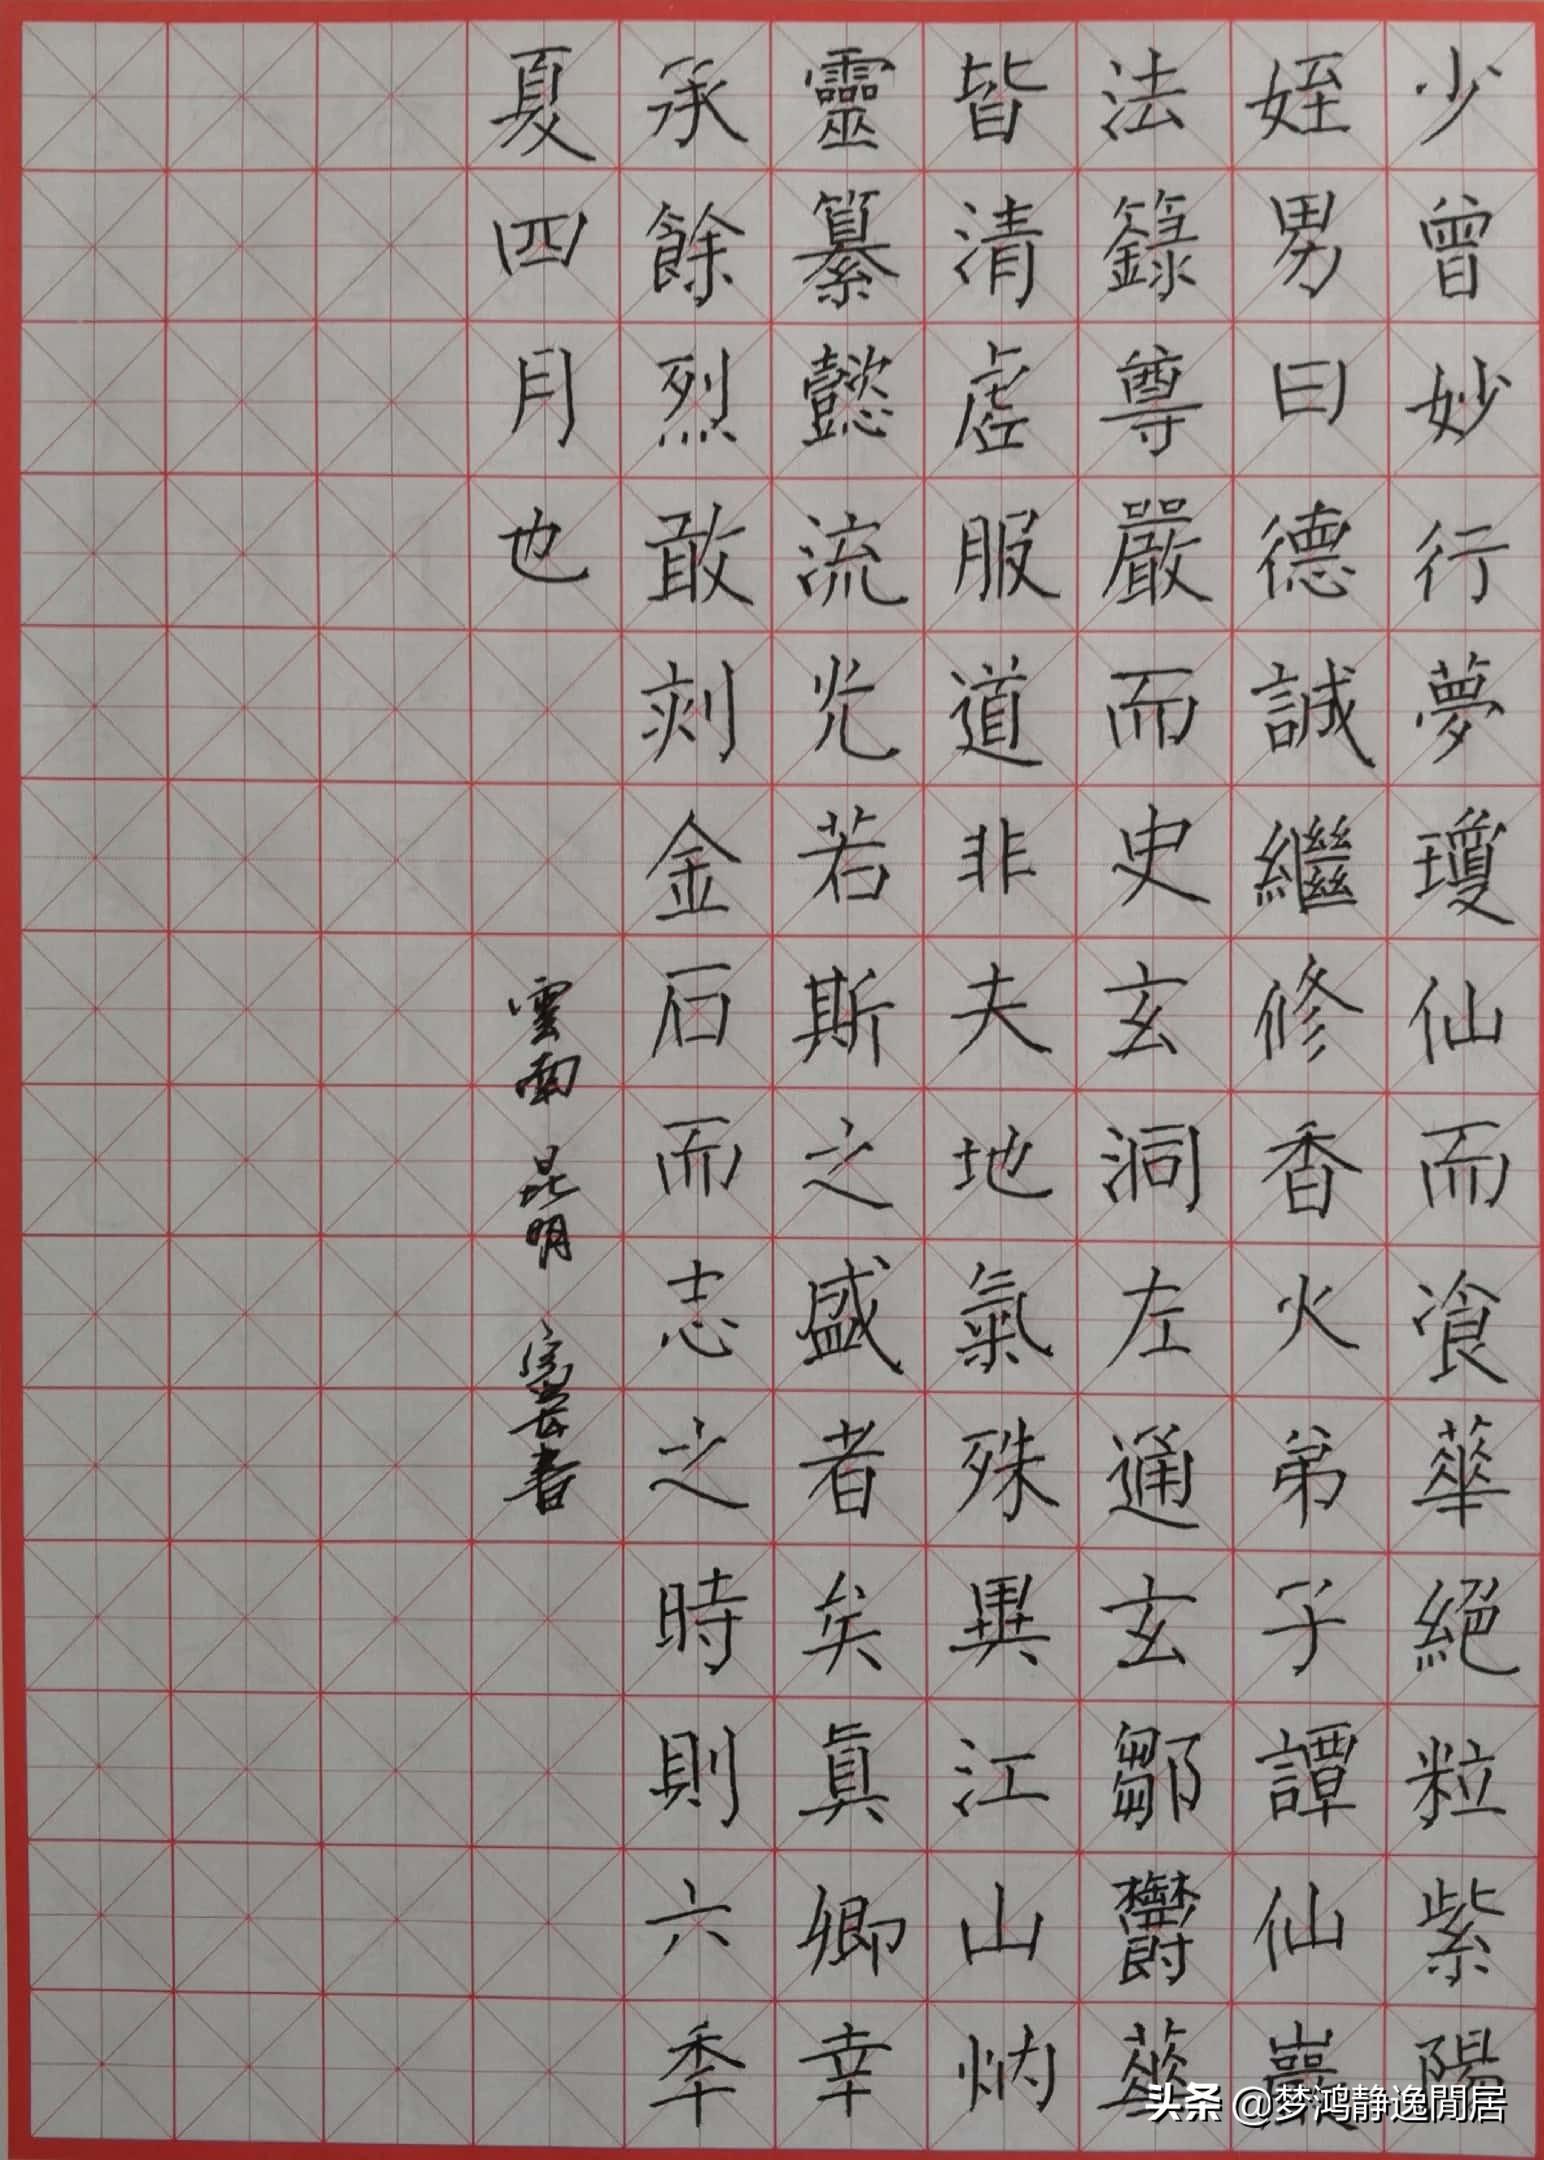 少曾妙行夢瓊仙而飡華絕粒紫陽
姪男曰德誠繼修香火弟子譚仙巖
法籙尊嚴而史玄洞左通玄鄒鬱華
皆清虛服道非夫地氣殊異江山炳
靈纂懿流光若斯之盛者矣真卿幸
承餘烈敢刻金石而志之時則六季
夏四月也
雲南
昆明
書
头条 @梦鸿静逸閒居